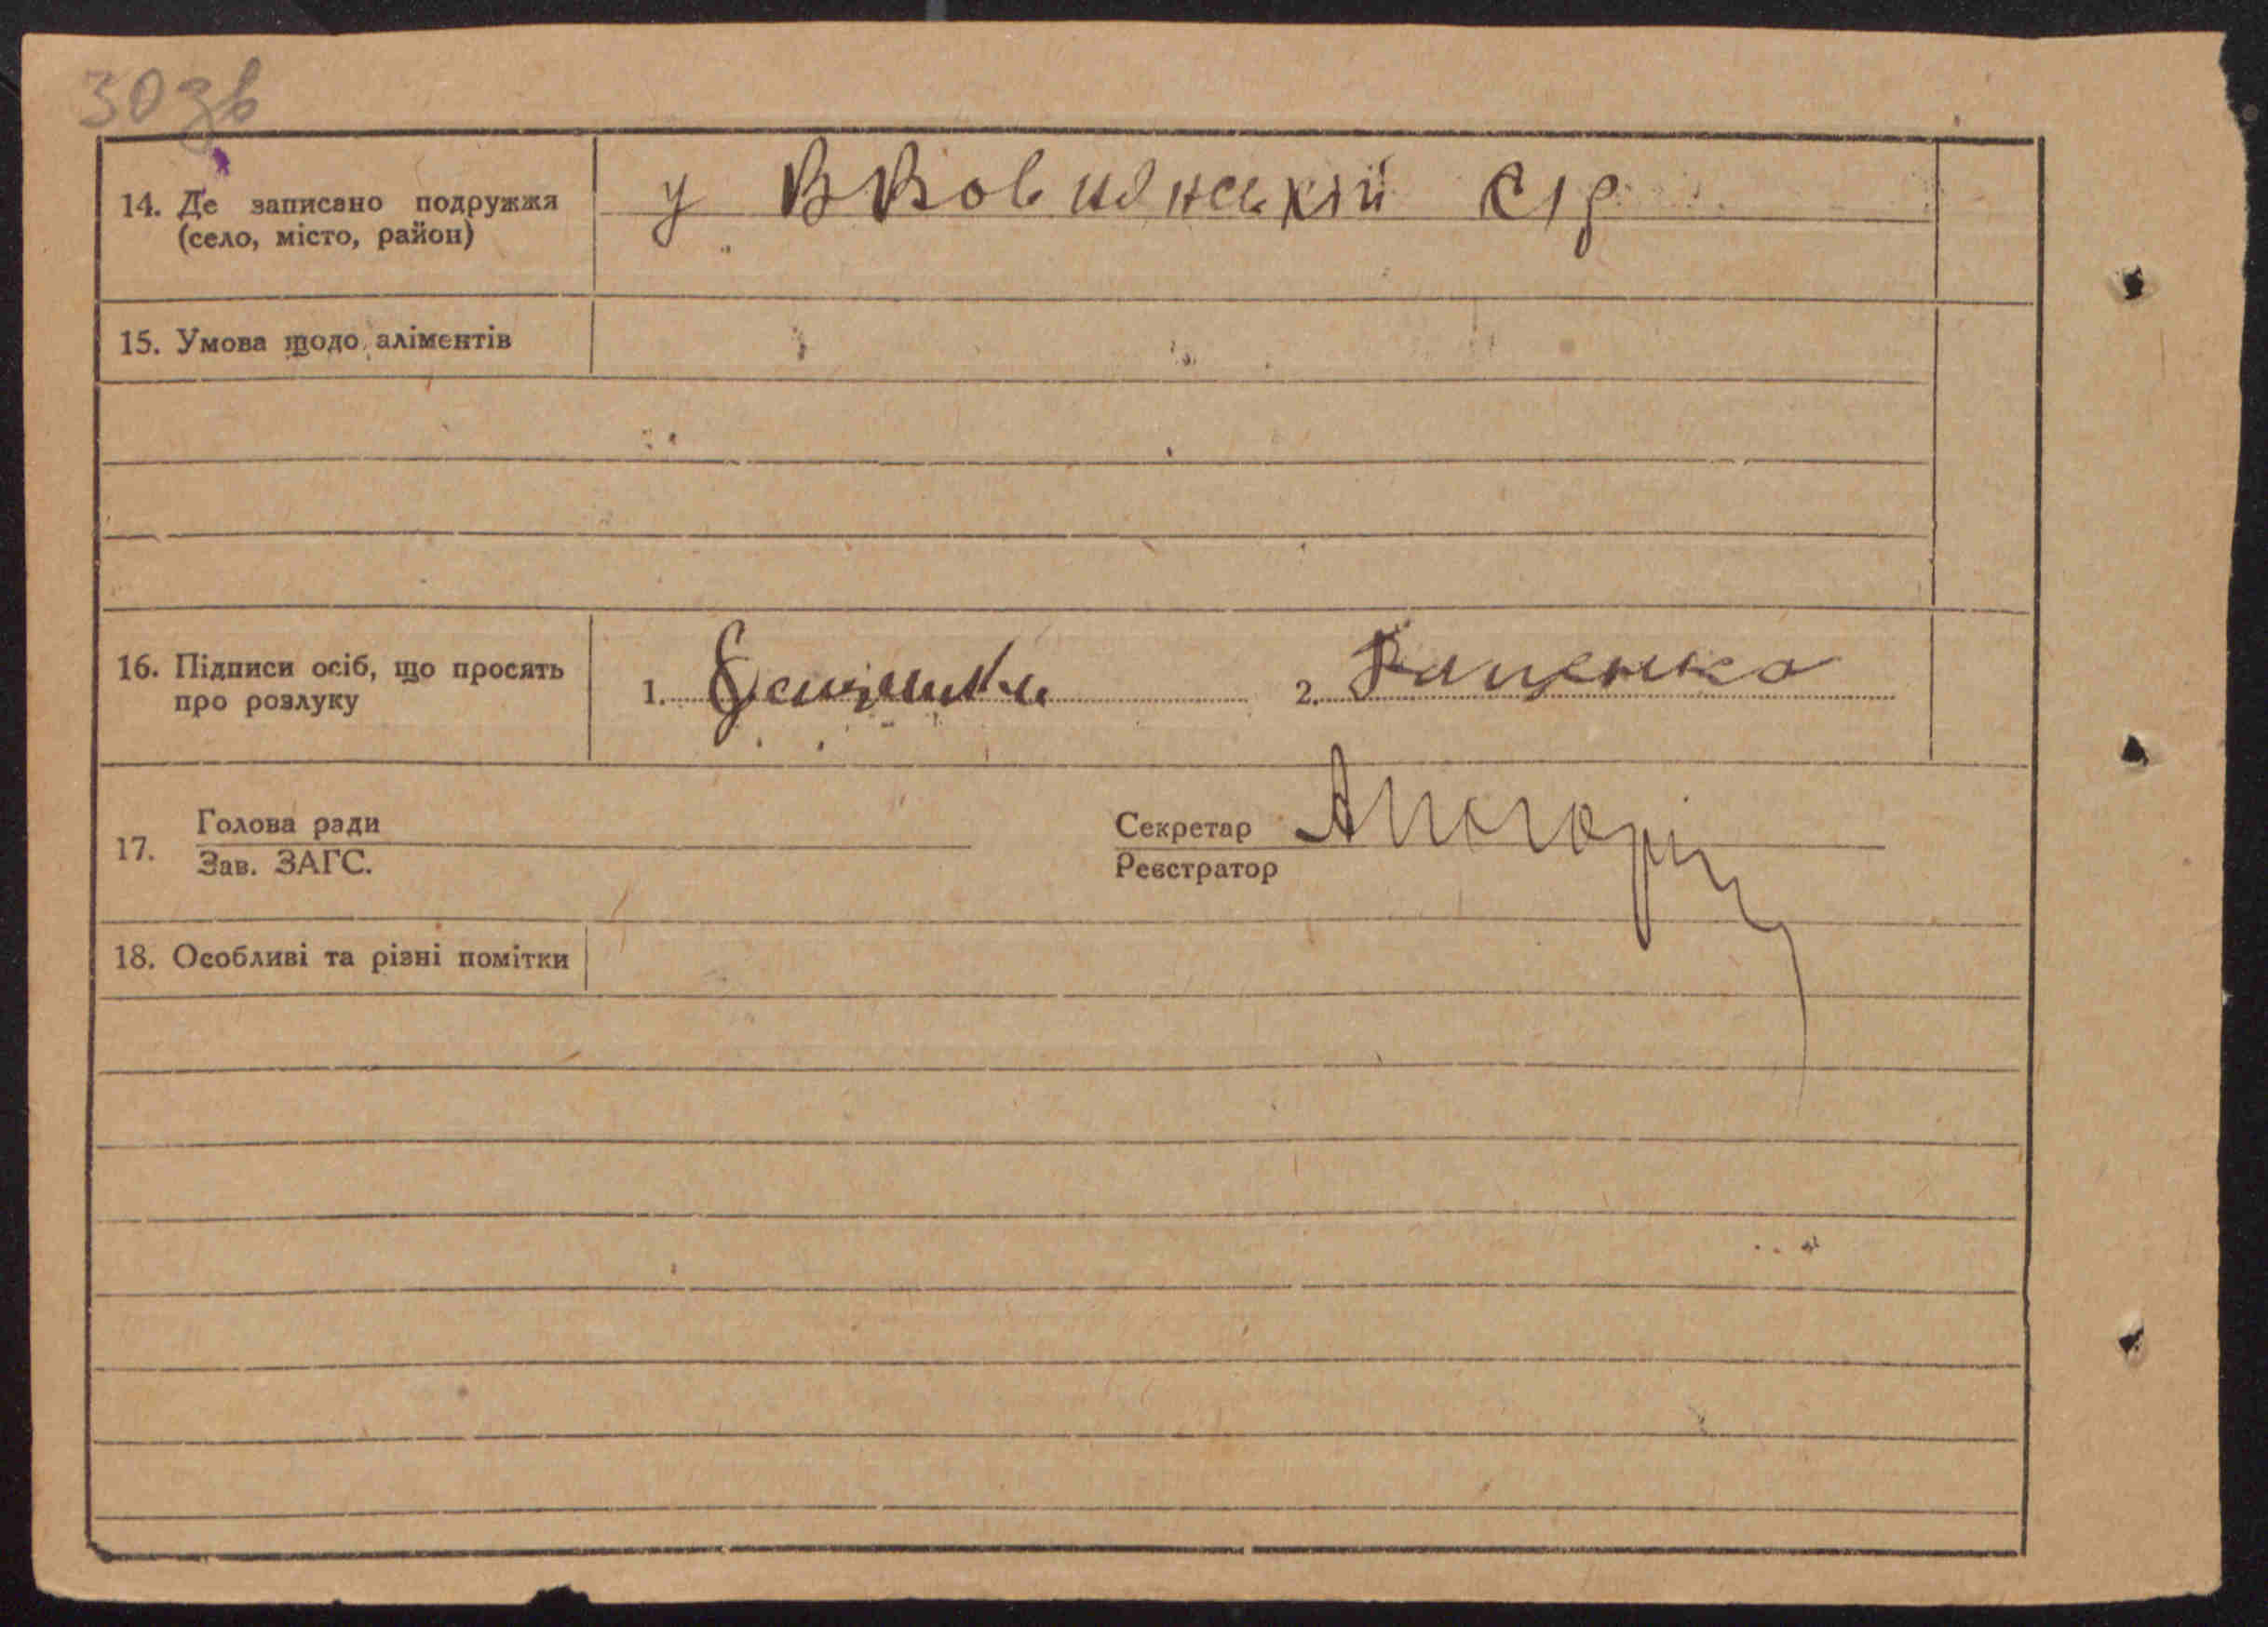 30зв
14. Де записано подружжя
(село, місто, район)
у
15. Умова щодо аліментів
16. Підписи осіб, що просять
про розлуку
1.
2. Ращенко
17.
Голова ради
Зав. ЗАГС.
Секретар
Реєстратор
18. Особливі та різні помітки